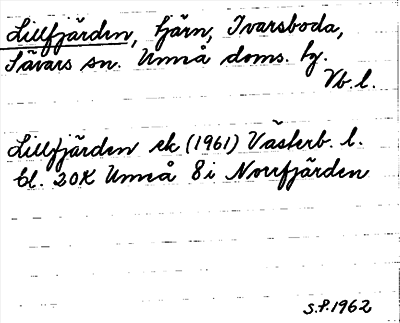 Lillfjärden, tjärn, Ivarsboda,
Sävars sn. Umeå doms. hg.
Vb. l.
Lillfjärden ek (1961) Västerb. l.
bl. 20K Umeå 8i Norrfjärden
S.P. 1962